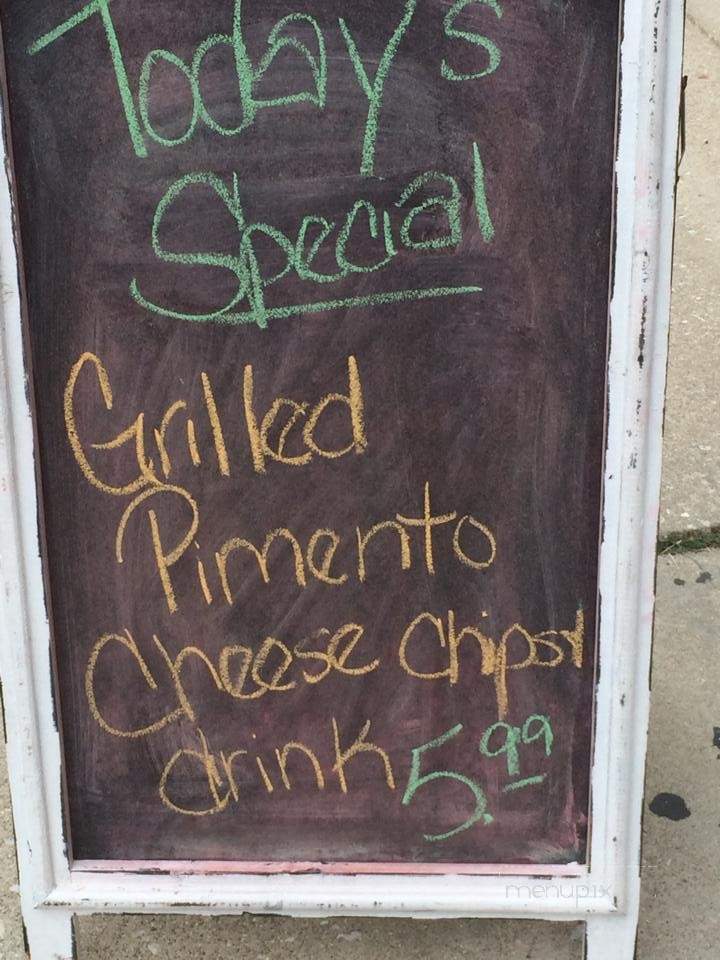 Today's
Special
Grilled
Pimento
Cheese Chips &
drink 5.99
menupix